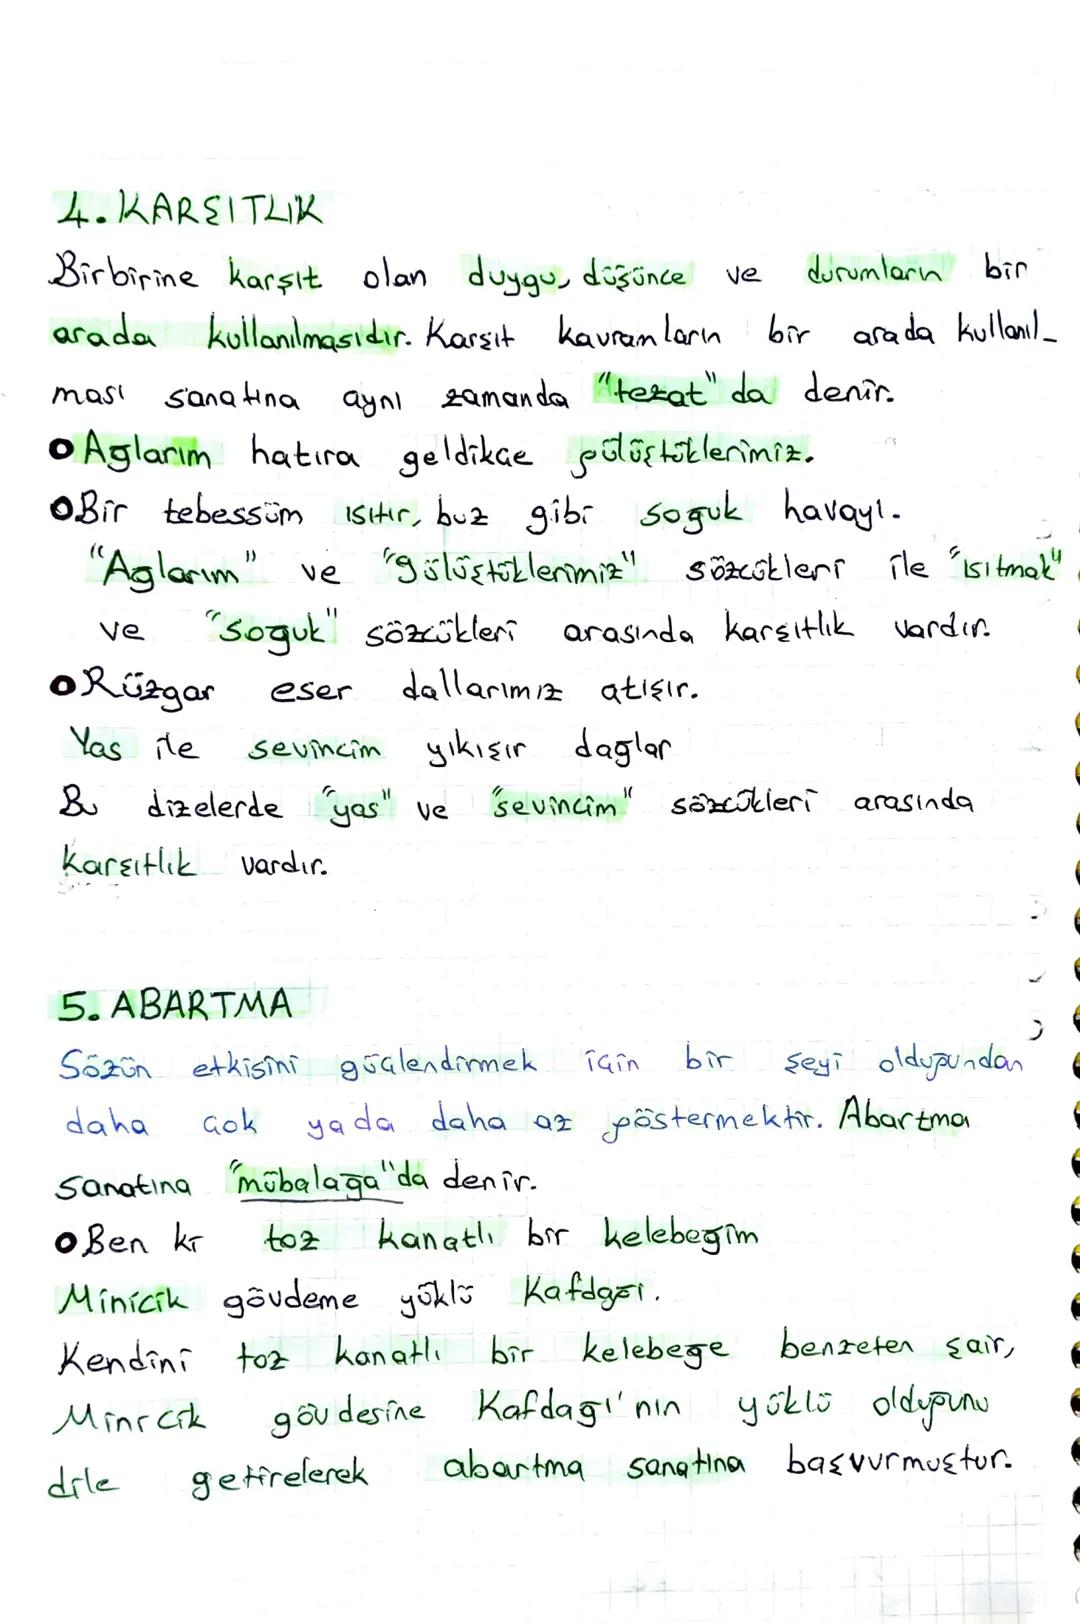 4. KARŞITLIK
Birbirine karşıt olan duygu, düşünce ve durumların bir
arada kullanılmasıdır. Karşıt kavramların bir arada kullanıl-
ması sanatına aynı zamanda "tezat" da denir.
Aglarım hatıra geldikçe gülüştüklerimiz.
Bir tebessüm ısıtır, buz gibi soguk havayı.
"Aglarım" ve "gülüştüklerimiz" sözcükleri ile "ısıtmak"
ve "soguk" sözcükleri arasında karşıtlık vardır.
Rüzgar eser dallarımız atışır.
Yas ile sevincim yıkışır daglar
Bu dizelerde "yas" ve "sevincim" sözcükleri arasında
karşıtlık vardır.
5. ABARTMA
Sözün etkisini güçlendirmek için bir şeyi oldugundan
daha çok yada daha az göstermektir. Abartma
sanatına "mübalaga"da denir.
Ben ki toz kanatlı bir kelebegim
Minicik gövdeme yüklü Kafdagı.
Kendini toz kanatlı bir kelebege benzeten şair,
Minicik gövdesine Kafdagı'nın yüklü oldugunu
dile getirelerek abartma sanatına başvurmuştur.